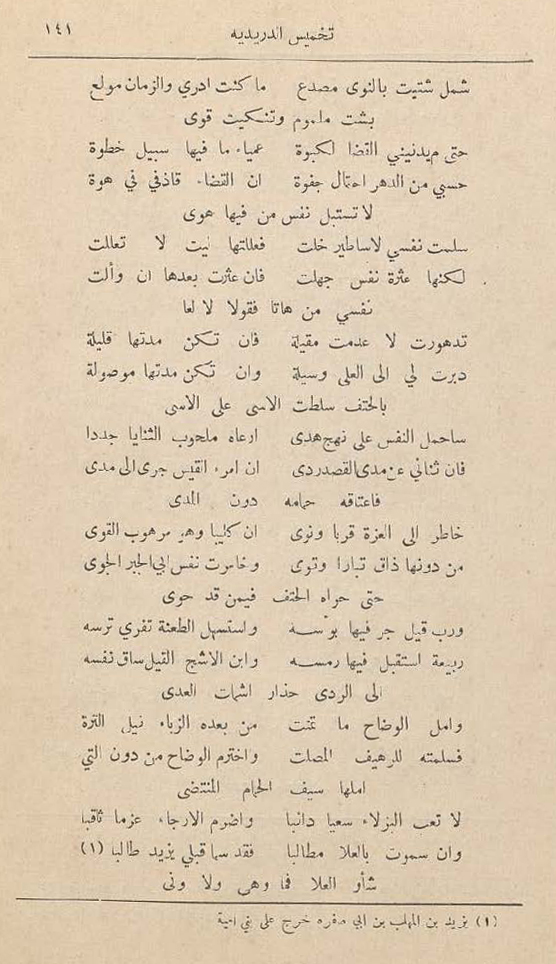 تخميس الدريديه ١٤١
شمل شتيت بالنوى مصدع ما كنت ادري والزمان مولع
بشت ملموم وتنكيث قوى
حتى يدنيني القضا لكبوة عمياء ما فيها سبيل خطوة
حسبي من الدهر احتمال جفوة ان القضاء قاذفي في هوة
لا تستبل نفس من فيها هوى
سلمت نفسي لاساطير خلت فعللتها ليت لا تعاللت
لكنها عثرة نفس جهلت فان عثرت بعدها ان وألت
نفسي من هاتا فقولا لا لعا
تدهورت لا عدمت مقيلة فان تكن مدتها قليلة
دبرت لي الى العلى وسيلة وان تكن مدتها موصولة
بالحتف سلطت الاسى على الاسى
ساحمل النفس على نهج هدى ارعاه ملحوب الثنايا جددا
فان ثناني عن مدى القصد ردى ان امرء القيس جرى الى مدى
فاعتاقه حمامه دون المدى
خاطر الى العزة قربا ونوى ان كليبا وهو مرهوب القوى
من دونها ذاق تبارا وتوى وخامرت نفس ابي الجبر الجوى
حتى حواه الحتف فيمن قد حوى
ورب قيل جر فيها بوسه واستسهل الطعنة تفري ترسه
ربيعة استقبل فيها رمسه وابن الاشج القيل ساق نفسه
الى الردى حذار اشمات العدى
وامل الوضاح ما تمنت من بعده الزباء نيل الترة
فسلمته للرهيف المصلت واخترم الوضاح من دون التي
املها سيف الحمام المنتضى
لا تعب البزلاء سعيا دائبا واضرم الارجاء عزما ثاقبا
وان سموت بالعلا مطالبا فقد سما قبلي يزيد طالبا (١)
شأو العلا فما وهى ولا ونى
(١) يزيد بن المهلب بن ابي صفره خرج على بني امية